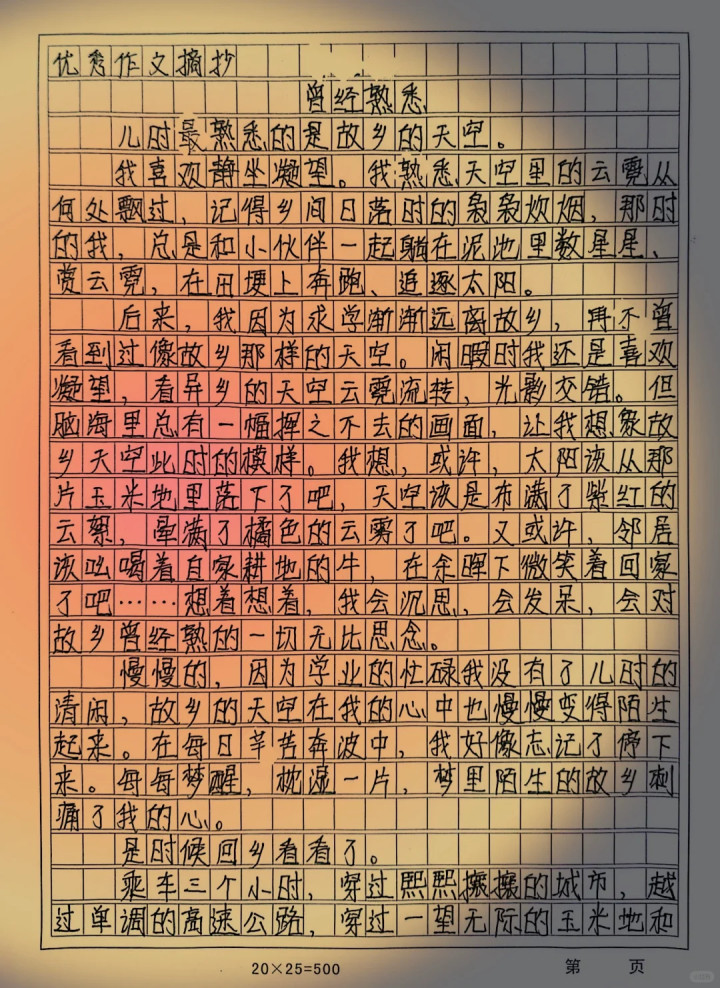 优秀作文摘抄
曾经熟悉
儿时最熟悉的是故乡的天空。
我喜欢静坐凝望。我熟悉天空里的云霓从
何处飘过，记得乡间日落时的袅袅炊烟，那时
的我，总是和小伙伴一起躺在泥地里数星星、
赏云霓，在田埂上奔跑、追逐太阳。
后来，我因为求学渐渐远离故乡，再不曾
看到过像故乡那样的天空。闲暇时我还是喜欢
凝望，看异乡的天空云霓流转，光影交错。但
脑海里总有一幅挥之不去的画面，让我想象故
乡天空此时的模样。我想，或许，太阳该从那
片玉米地里落下了吧，天空该是布满了紫红的
云絮，晕满了橘色的云雾了吧。又或许，邻居
该吆喝着自家耕地的牛，在余晖下微笑着回家
了吧……想着想着，我会沉思，会发呆，会对
故乡曾经熟的一切无比思念。
慢慢的，因为学业的忙碌我没有了儿时的
清闲，故乡的天空在我的心中也慢慢变得陌生
起来。在每日辛苦奔波中，我好像忘记了停下
来。每每梦醒，枕湿一片，梦里陌生的故乡刺
痛了我的心。
是时候回乡看看了。
乘车三个小时，穿过熙熙攘攘的城市，越
过单调的高速公路，穿过一望无际的玉米地和
20×25=500 第 页